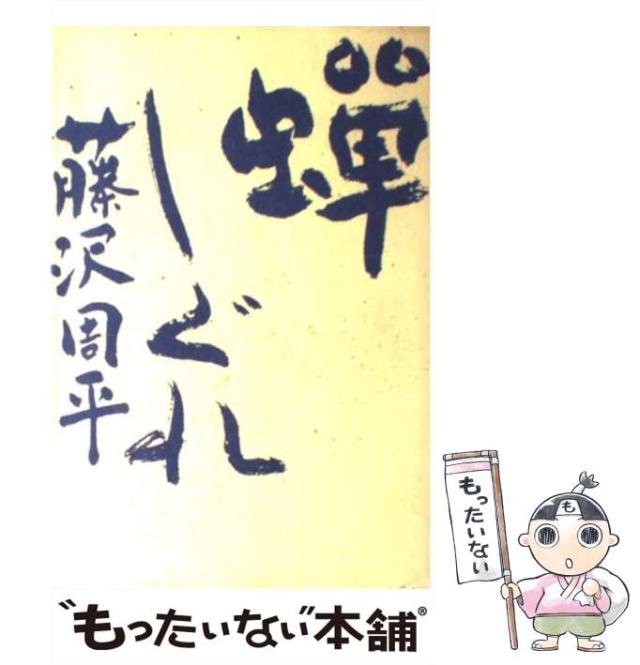 蟬
しぐれ
藤沢周平
もったいない
も
"もったいない"本舗®